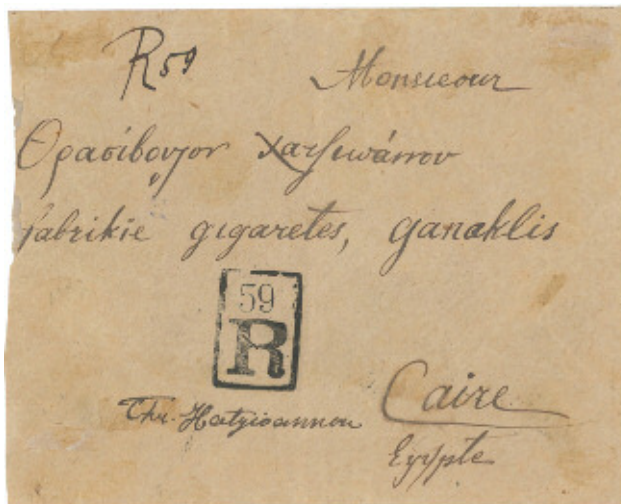 R59
Monsieour
Θρασίβουλον Χατζιωάννου
fabrikie gigaretes, ganaklis
59
R
Thr. Hatzioannou
Caire
Egypte